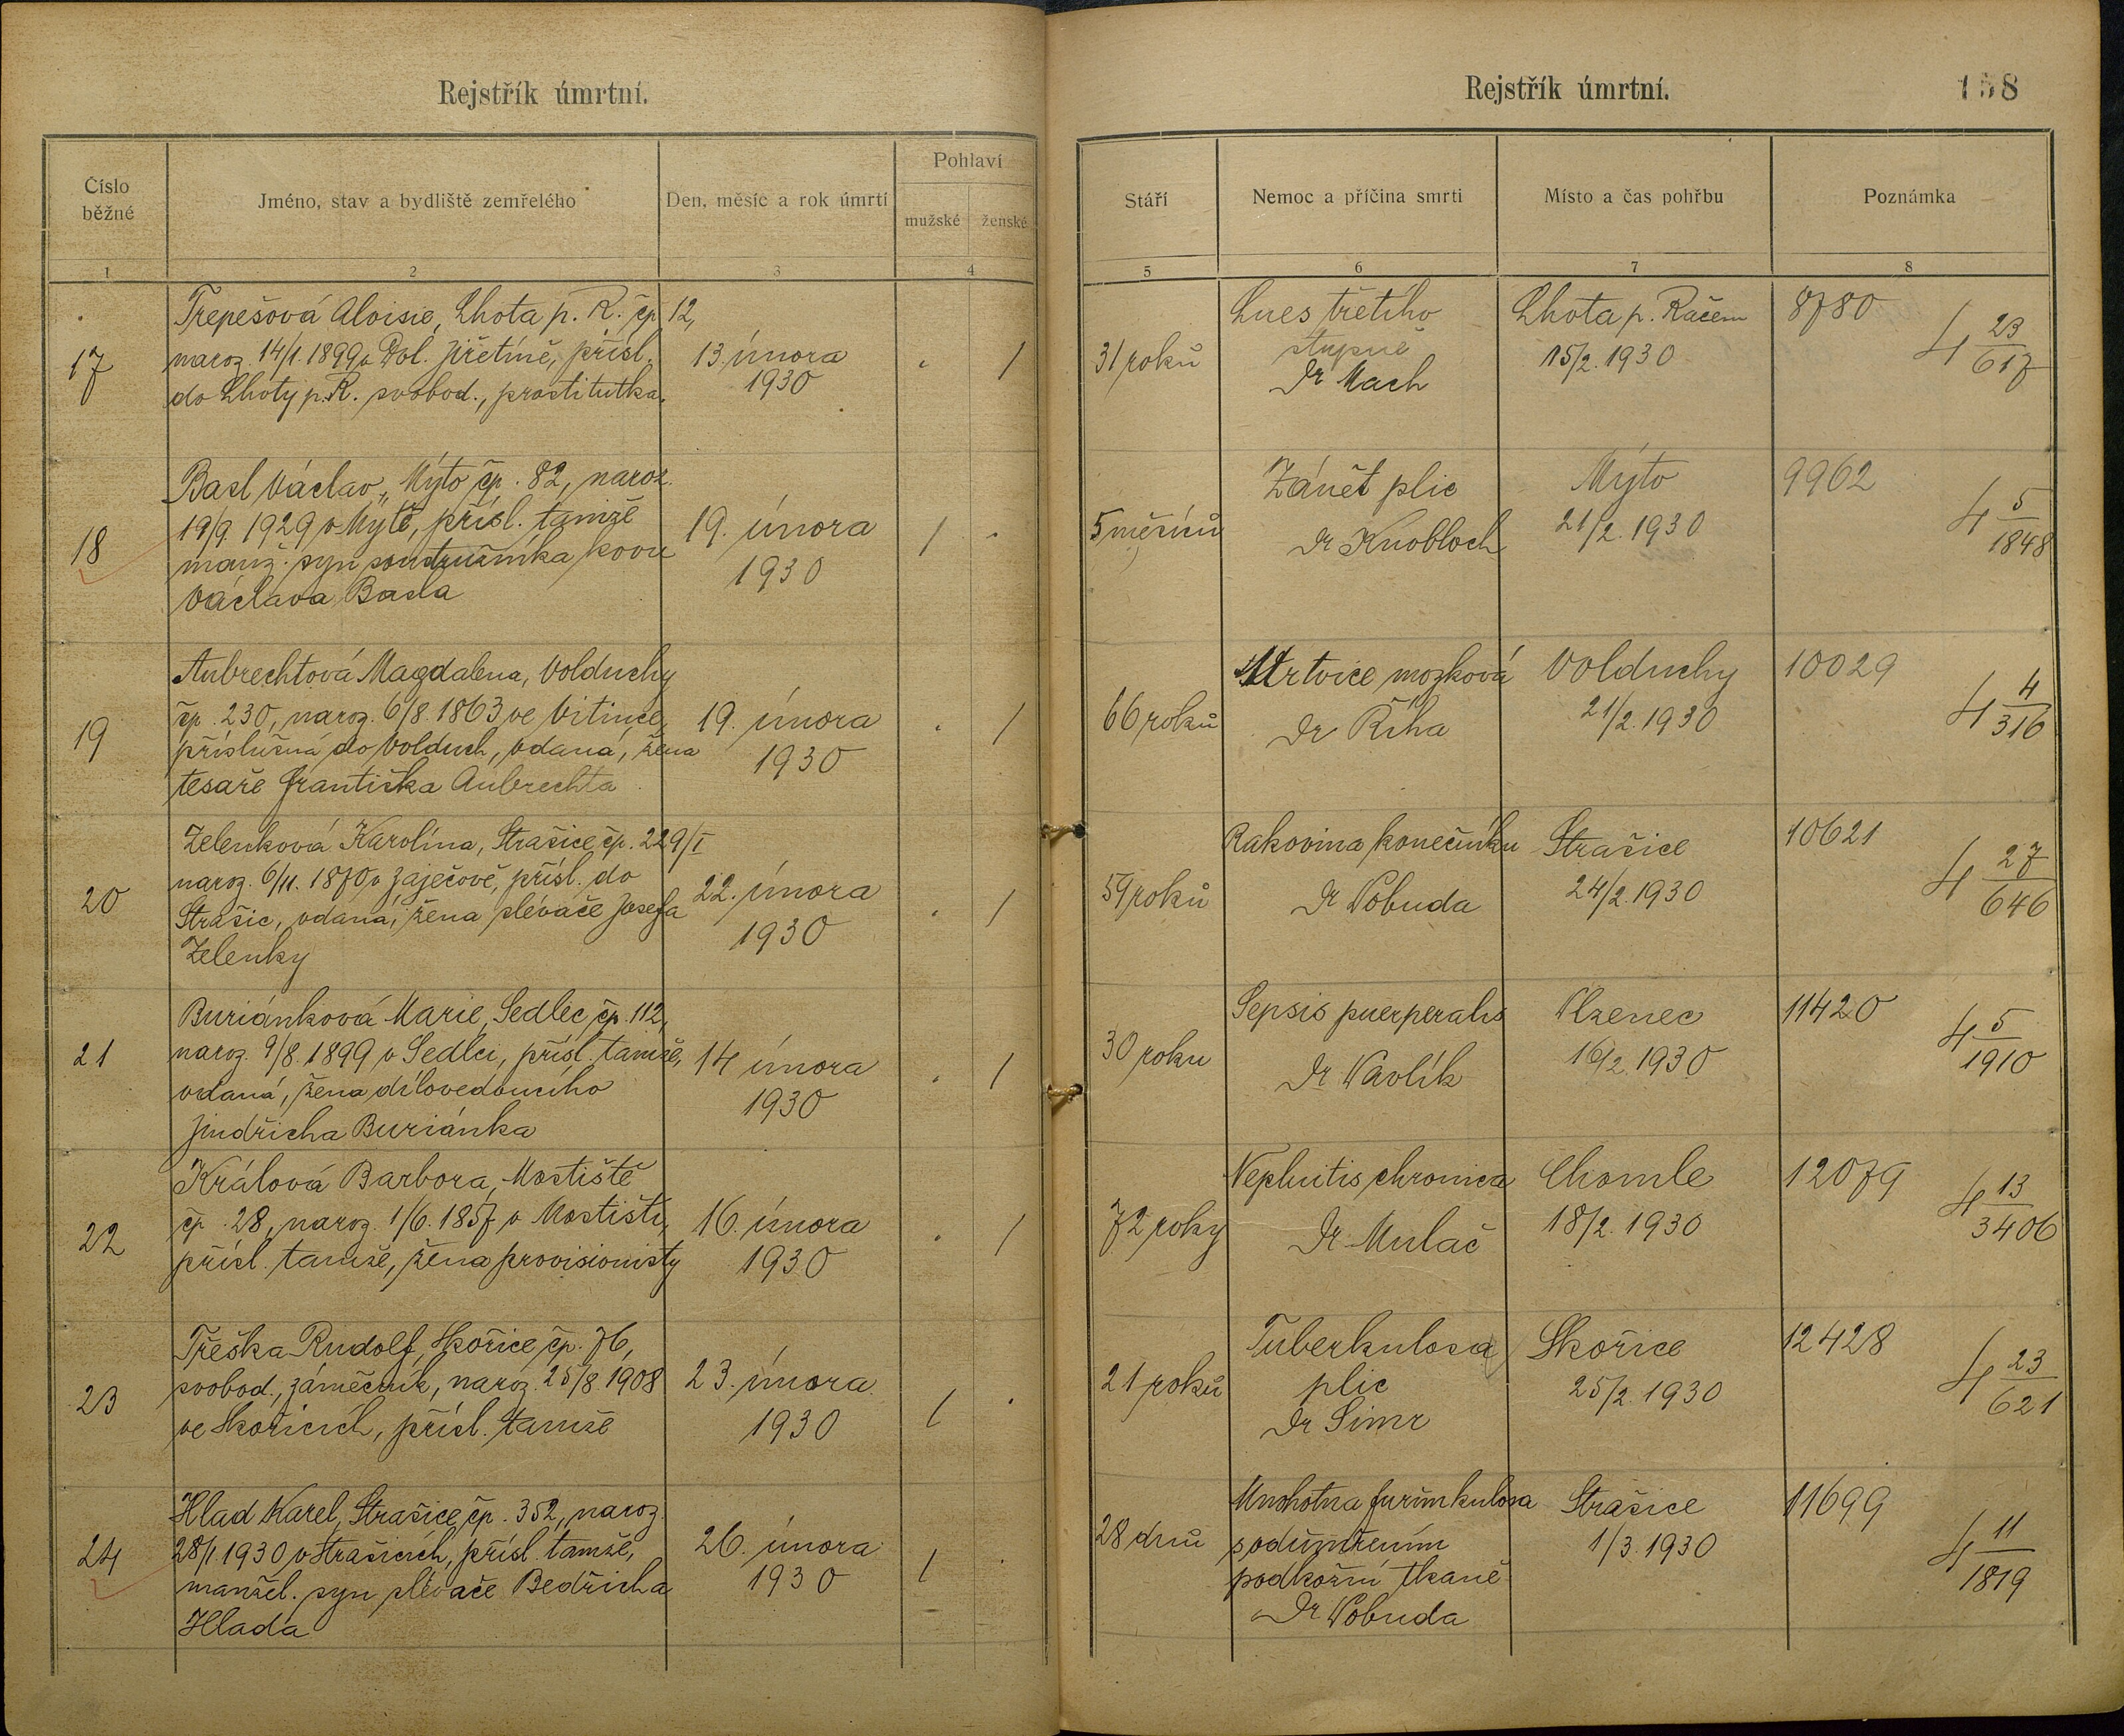 Rejstřík úmrtní.
Číslo běžné
Jméno, stav a bydliště zemřelého
Den, měsíc a rok úmrtí
Pohlaví
mužské
ženské
1
2
3
4
17
Trepešová Aloisie, Lhota p. R. čp 12,
naroz. 14/1. 1899 v Dol. Jiřetíně, přísl.
do Lhoty p. R. svobod., prostitutka.
13. února
1930
. /
18
Basl Václav, Mýto čp. 82, naroz.
19/9. 1929 v Mýtě, přísl. tamže
manž. syn soustružníka kovu
Václava Basla
19. února
1930
/ .
19
Aubrechtová Magdalena, Volduchy
čp. 230, naroz. 6/8. 1863 ve Vitince,
příslušná do Volduch, vdaná, žena
tesaře Františka Aubrechta
19. února
1930
. /
20
Zelenková Karolína, Strašice čp. 229/I
naroz. 6/11. 1870 v Zaječově, přísl. do
Strašic, vdaná, žena slévače Josefa
Zelenky
22. února
1930
. /
21
Buriánková Marie, Sedlec čp. 112,
naroz. 9/8. 1899 v Sedlci, přísl. tamže,
vdaná, žena dílovedoucího
Jindřicha Buriánka
14 února
1930
. /
22
Králová Barbora, Mostiště
čp. 28, naroz. 1/6. 1857 v Mostišti,
přísl. tamže, žena provisionisty
16. února
1930
. /
23
Třeška Rudolf, Skořice čp. 76,
svobod., zámečník, naroz. 25/8. 1908
ve Skořicích, přísl. tamže
23. února
1930
/ .
24
Hlad Karel, Strašice čp. 352, naroz.
28/1. 1930 v Strašicích, přísl. tamže,
manžel. syn slévače Bedřicha
Hlada
26. února
1930
/ .
Rejstřík úmrtní.
158
Stáří
Nemoc a příčina smrti
Místo a čas pohřbu
Poznámka
5
6
7
8
31 roků
Lues třetího
stupně
Dr Mach
Lhota p. Račem
15/2. 1930
8780
4 23/617
5 měsíců
Zánět plic
Dr Knobloch
Mýto
21/2. 1930
9962
4 5/1848
66 roků
Mrtvice mozková
Dr Říha
Volduchy
21/2. 1930
10029
4 4/316
59 roků
Rakovina konečníku
Dr Pobuda
Strašice
24/2. 1930
10621
4 27/646
30 roku
Sepsis puerperalis
Dr Pavlík
Plzenec
16/2. 1930
11420
4 5/1910
72 roky
Nephritis chronica
Dr Mulač
Chomle
18/2. 1930
12079
4 13/3406
21 roků
Tuberkulosa
plic
Dr Simr
Skořice
25/2. 1930
12428
4 23/621
28 dnů
furunkulosa
podkožní tkaně
Dr Pobuda
Strašice
1/3. 1930
11699
4 11/1819